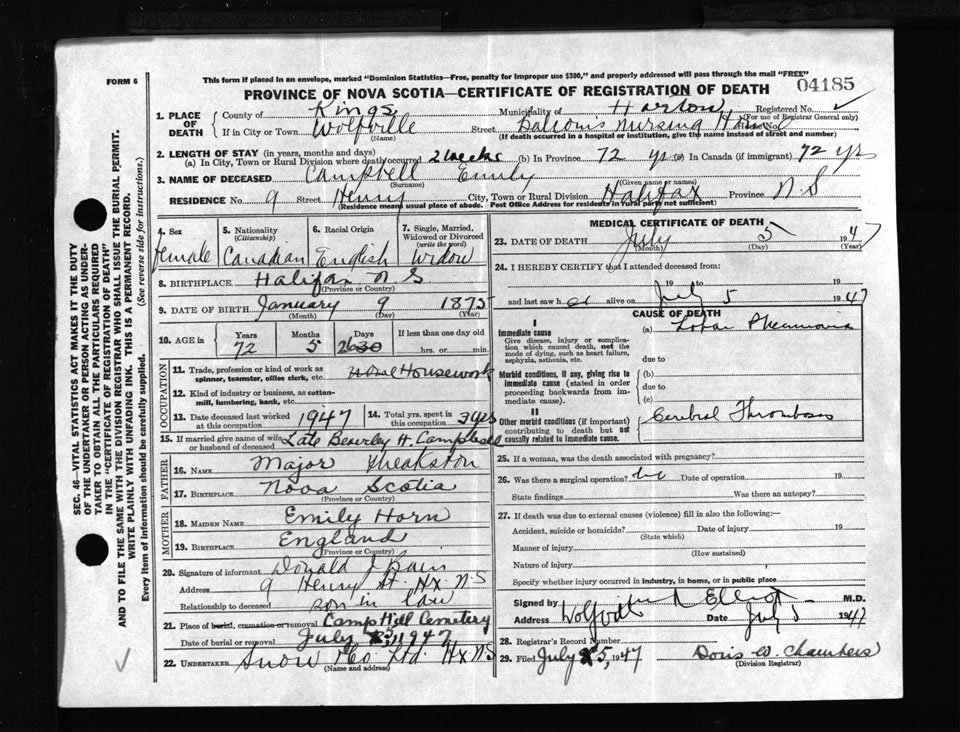 FORM 6
This form if placed in an envelope, marked "Dominion Statistics—Free, penalty for improper use $300," and properly addressed will pass through the mail "FREE"
04185
PROVINCE OF NOVA SCOTIA—CERTIFICATE OF REGISTRATION OF DEATH
1. PLACE OF DEATH
County of Kings Municipality of Horton Registered No.
(For use of Registrar General only)
If in City or Town Wolfville Street Nursing Home No.
(Name) (If death occurred in a hospital or institution, give the name instead of street and number)
2. LENGTH OF STAY (in years, months and days)
(a) In City, Town or Rural Division where death occurred 2 weeks (b) In Province 72 yrs (c) In Canada (if immigrant) 72 yrs
3. NAME OF DECEASED Campbell Emily
(Surname) (Given name or names)
RESIDENCE No. 9 Street Henry City, Town or Rural Division Halifax Province N.S
(Residence means usual place of abode. Post Office Address for residents in rural parts not sufficient)
4. Sex Female
5. Nationality (Citizenship) Canadian
6. Racial Origin English
7. Single, Married, Widowed or Divorced (write the word) Widow
8. BIRTHPLACE Halifax N S
(Province or Country)
9. DATE OF BIRTH January 9 1875
(Month) (Day) (Year)
10. AGE in Years 72 Months 5 Days 26 30 If less than one day old hrs. or min.
OCCUPATION
11. Trade, profession or kind of work as spinner, teamster, office clerk, etc. Housework
12. Kind of industry or business, as cotton-mill, lumbering, bank, etc.
13. Date deceased last worked at this occupation 1947
14. Total yrs. spent in this occupation
15. If married give name of wife or husband of deceased Late Beverley H. Campbell
FATHER
16. NAME Major Theakston
17. BIRTHPLACE Nova Scotia
(Province or Country)
MOTHER
18. MAIDEN NAME Emily Horn
19. BIRTHPLACE England
(Province or Country)
20. Signature of informant Donald J
Address 9 Henry St. Hx. N.S
Relationship to deceased son in law
21. Place of burial, cremation or removal Camp Hill Cemetery
Date of burial or removal July 1947
22. UNDERTAKER Snow & Co. Ltd. Hx N S
(Name and address)
MEDICAL CERTIFICATE OF DEATH
23. DATE OF DEATH July 5 1947
(Month) (Day) (Year)
24. I HEREBY CERTIFY that I attended deceased from:
19 to 19
and last saw h er alive on July 5 1947
CAUSE OF DEATH
I
Immediate cause
Give disease, injury or complication which caused death, not the mode of dying, such as heart failure, asphyxia, asthenia, etc.
(a) Lobar Pneumonia
due to
Morbid conditions, if any, giving rise to immediate cause (stated in order proceeding backwards from immediate cause).
(b)
due to
(c)
II
Other morbid conditions (if important) contributing to death but not causally related to immediate cause.
Cerebral Thrombosis
25. If a woman, was the death associated with pregnancy?
26. Was there a surgical operation? no Date of operation 19
State findings Was there an autopsy?
27. If death was due to external causes (violence) fill in also the following:—
Accident, suicide or homicide? Date of injury 19
(State which)
Manner of injury
(How sustained)
Nature of injury
Specify whether injury occurred in industry, in home, or in public place
Signed by Elliott M.D.
Address Wolfville Date July 5 1947
28. Registrar's Record Number
29. Filed July 5, 1947 Doris W. Chambers
(Division Registrar)
SEC. 46—VITAL STATISTICS ACT MAKES IT THE DUTY
OF THE UNDERTAKER OR PERSON ACTING AS UNDER-
TAKER TO OBTAIN ALL THE PARTICULARS REQUIRED
IN THE "CERTIFICATE OF REGISTRATION OF DEATH"
AND TO FILE THE SAME WITH THE DIVISION REGISTRAR WHO SHALL ISSUE THE BURIAL PERMIT.
WRITE PLAINLY WITH UNFADING INK. THIS IS A PERMANENT RECORD.
Every item of information should be carefully supplied. (See reverse side for instructions.)